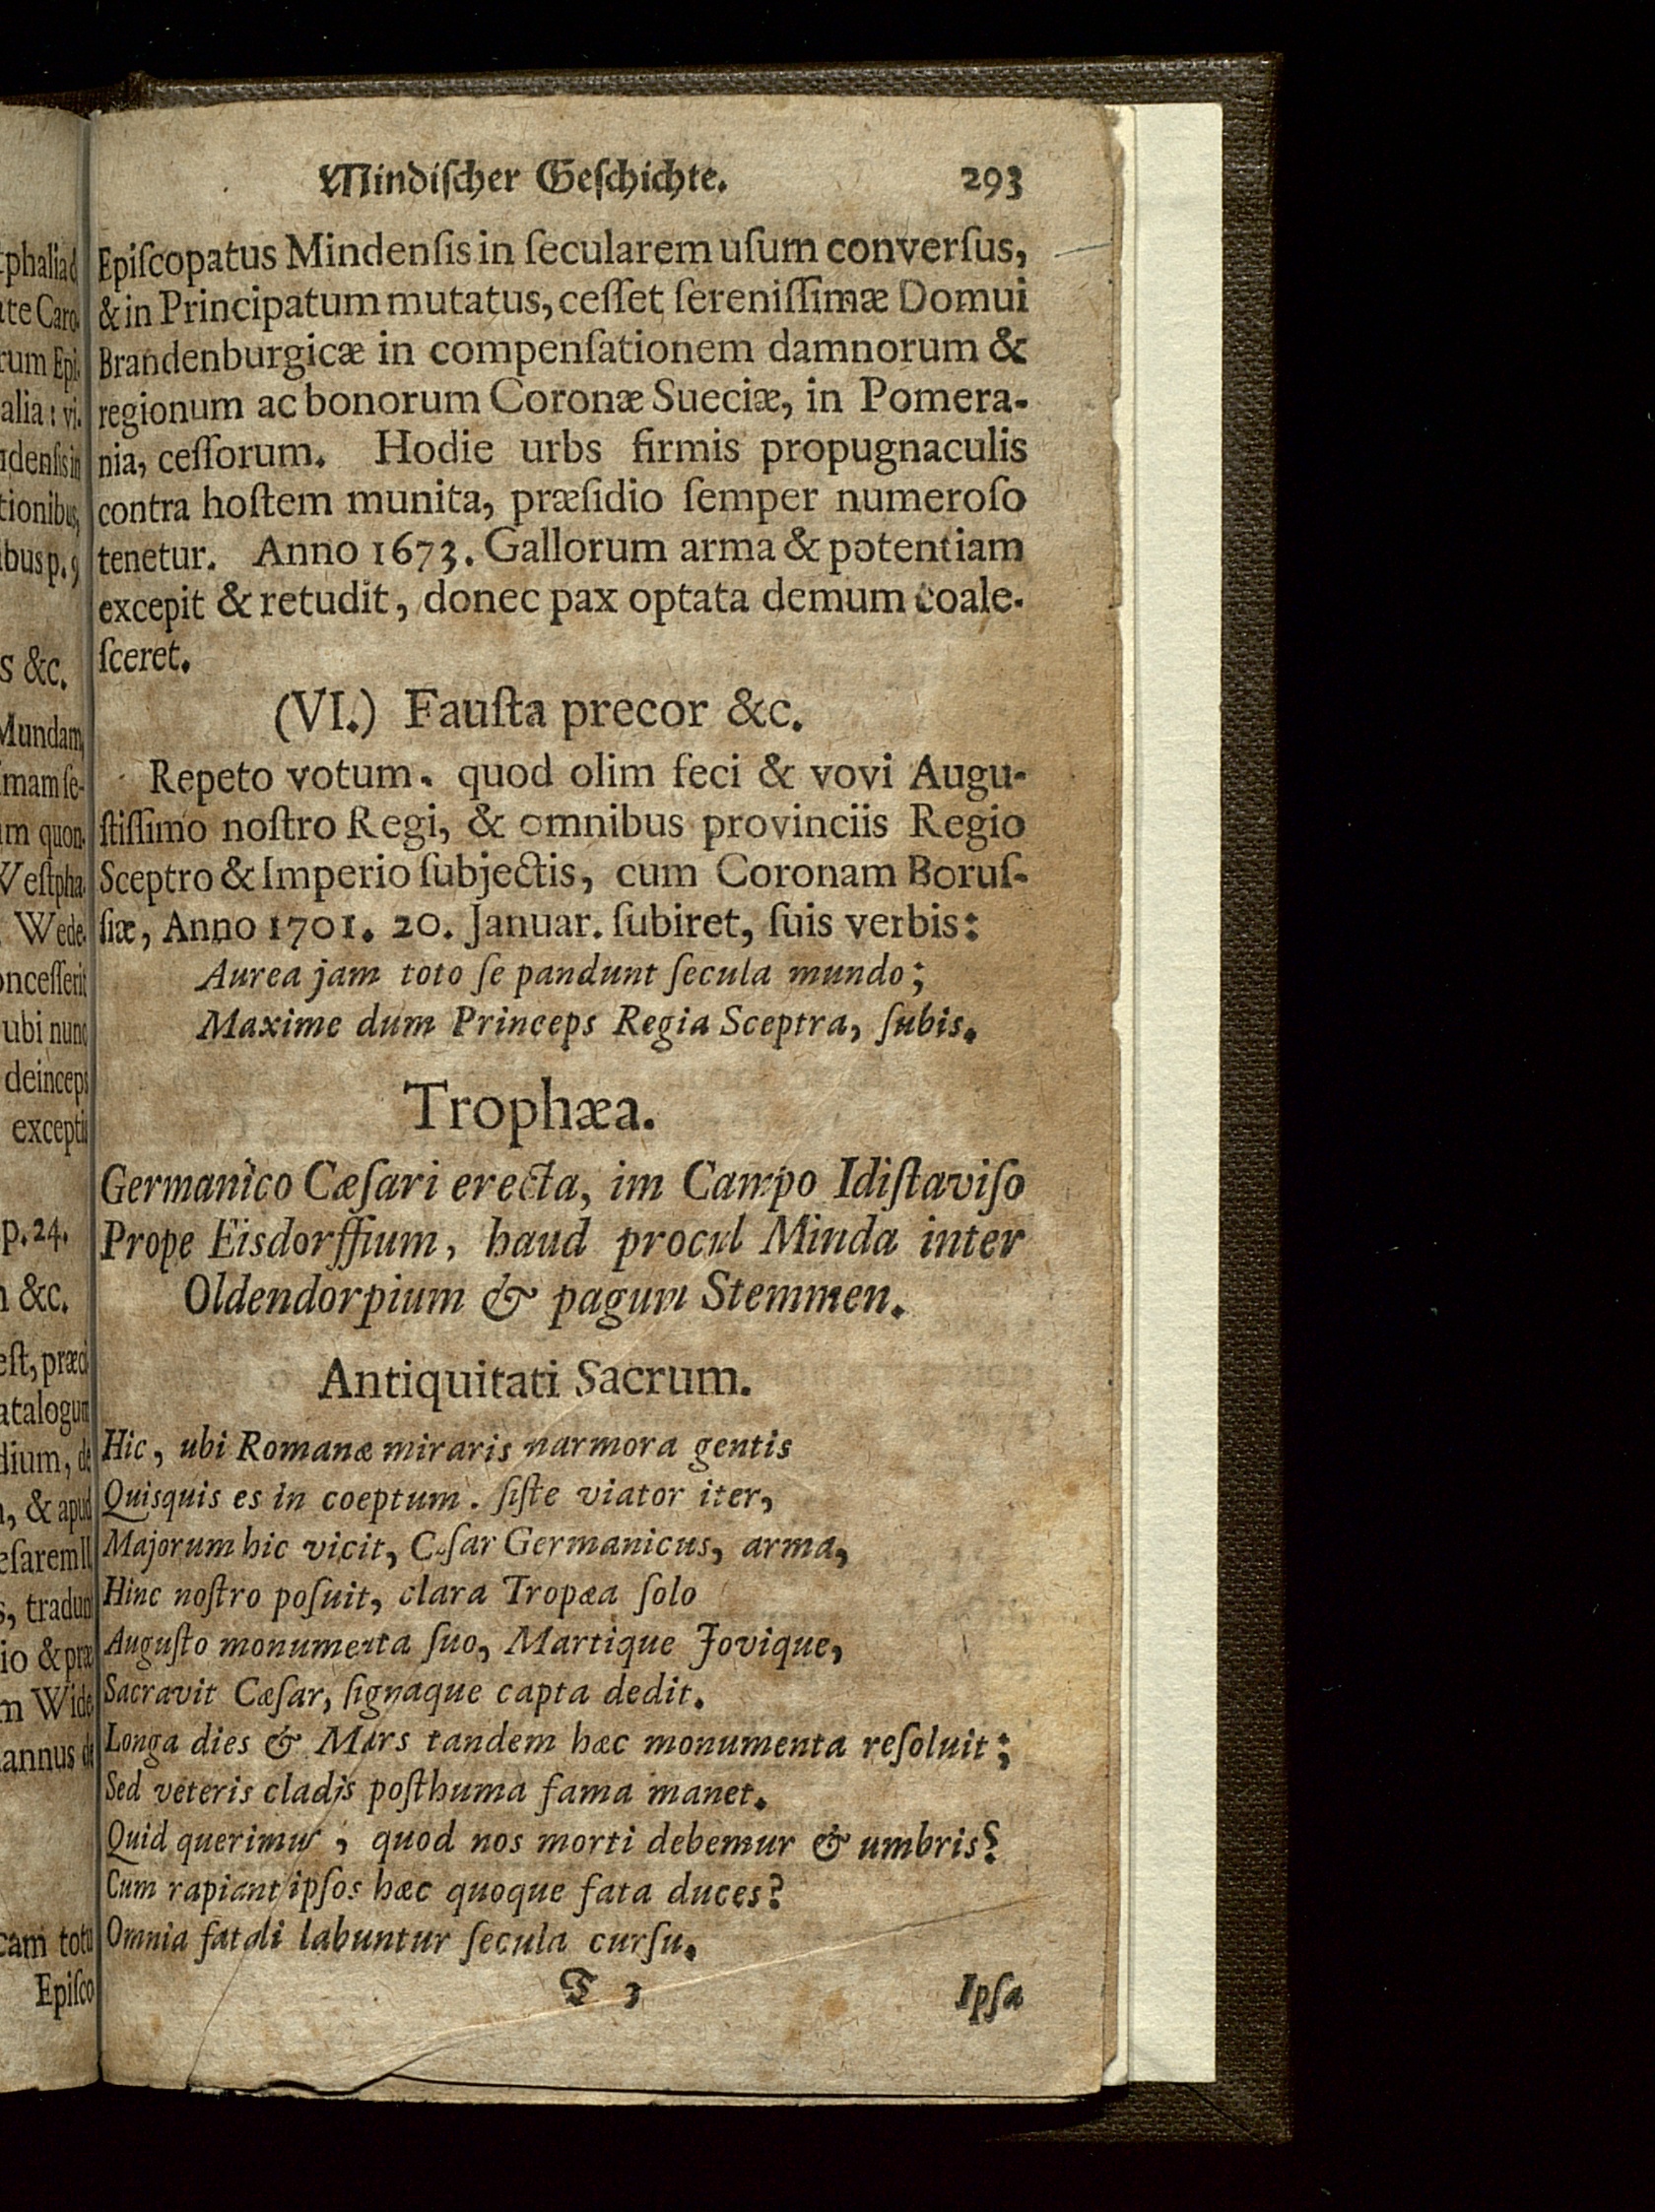 Mindiſcher Geſchichte. 293
Epiſcopatus Mindenſis in ſecularem uſum converſus,
& in Principatum mutatus, ceſſet ſereniſſimæ Domui
Brandenburgicæ in compenſationem damnorum &
regionum ac bonorum Coronæ Sueciæ, in Pomera-
nia, ceſſorum. Hodie urbs firmis propugnaculis
contra hoſtem munita, præſidio ſemper numeroſo
tenetur. Anno 1673. Gallorum arma & potentiam
excepit & retudit, donec pax optata demum coale-
ſceret.
(VI.) Fauſta precor &c.
Repeto votum. quod olim feci & vovi Augu-
ſtiſſimo noſtro Regi, & omnibus provinciis Regio
Sceptro & Imperio ſubjectis, cum Coronam Boruſ-
ſiæ, Anno 1701. 20. Januar. ſubiret, ſuis verbis:
Aurea jam toto ſe pandunt ſecula mundo;
Maxime dum Princeps Regia Sceptra, ſubis.
Trophæa.
Germanico Cæſari erecta, im Campo Idiſtaviſo
Prope Eisdorffium, haud procul Minda inter
Oldendorpium & pagum Stemmen.
Antiquitati Sacrum.
Hic, ubi Romanæ miraris narmora gentis
Quisquis es in coeptum. ſiſte viator iter,
Majorum hic vicit, Cæſar Germanicus, arma,
Hinc noſtro poſuit, clara Tropæa ſolo
Auguſto monumenta ſuo, Martique Jovique,
Sacravit Cæſar, ſignaque capta dedit.
Longa dies & Mars tandem hæc monumenta reſoluit;
Sed veteris cladis poſthuma fama manet.
Quid querimur, quod nos morti debemur & umbris?
Cum rapiant ipſos hæc quoque fata duces?
Omnia fatali labuntur ſecula curſu.
T 3 Ipſa